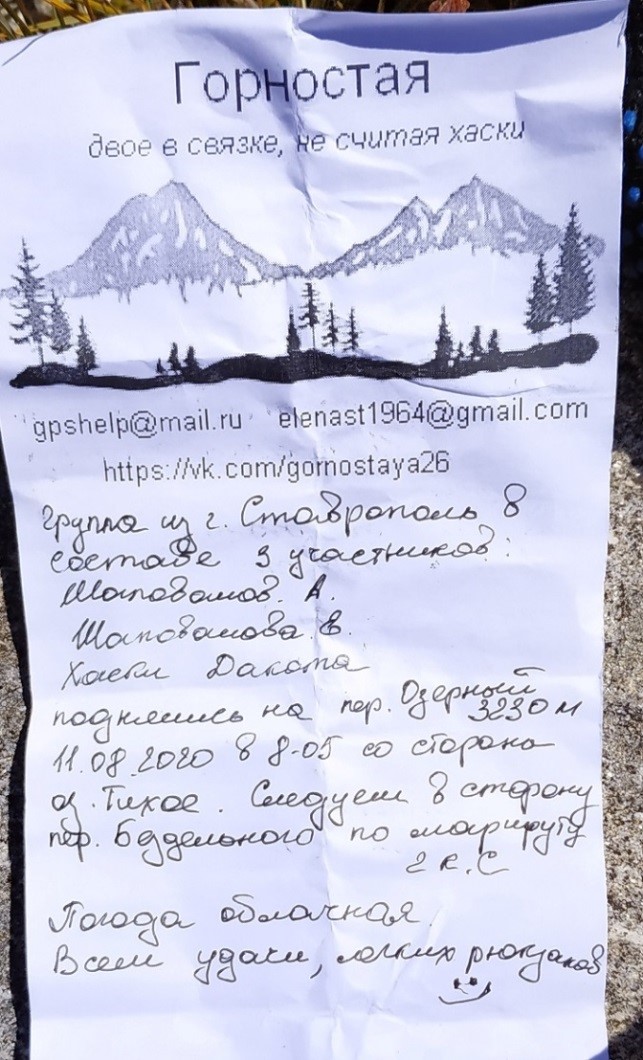 Горностая
двое в связке, не считая хаски
gpshelp@mail.ru elenast1964@gmail.com
https://vk.com/gornostaya26
Группа из г. Ставрополь в
составе 3 участников:
Шаповалов. А.
Шаповалова. Е.
Хаски Дакота
поднялись на пер. Озерный
3230 м
11.08.2020 в 8-05 со стороны
оз. Тихое. Следуем в сторону
пер. Бездельного по маршруту
2 к.с
Погода облачная.
Всем удачи, легких рюкзаков